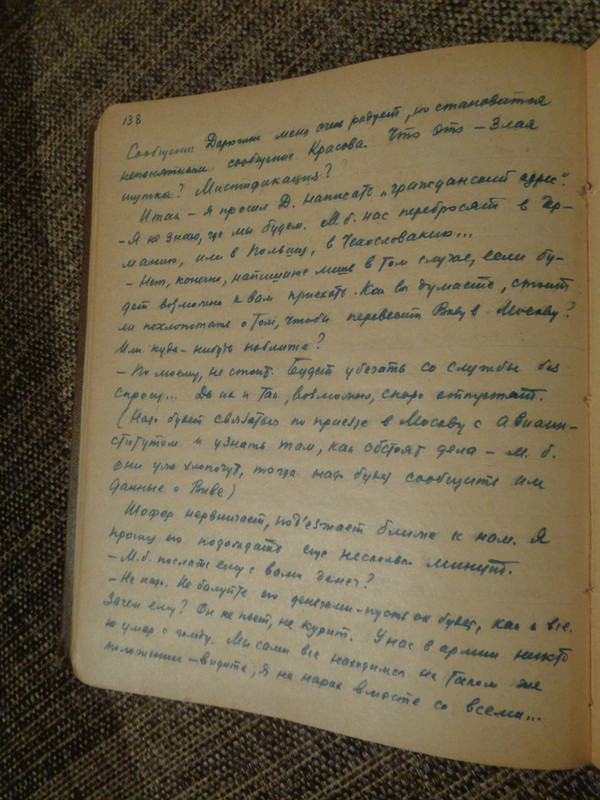 138
Сообщение Дарюшина меня очень радует, но становится
непонятным сообщение Красова. Что это – Злая
шутка? Мистификация?
Итак – я просил Д. написать „гражданский адрес“.
– Я не знаю, где мы будем. М.б. нас перебросят в Гер-
манию, или в Польшу, в Чехословакию...
– Нет, конечно, напишите мне в том случае, если бу-
дет возможно к вам приехать. Как вы думаете, стоит
ли похлопотать о том, чтобы перевести в Москву?
Или куда-нибудь поближе?
– По моему, не стоит. Будет убегать со службы без
спросу... Да их и так, возможно, скоро отпустят.
(Надо будет связаться по приезде в Москву с Авиаин-
ститутом и узнать там, как обстоят дела – М.б.
они уже хлопочут, тогда надо будет сообщить им
данные о)
Шофер нервничает, под'езжает ближе к нам. Я
прошу его подождать еще несколько минут.
– М.б. послать ему с вами денег?
– Не надо. Не балуйте его деньгами – пусть он будет, как и все.
Зачем ему? Он не пьет, не курит. У нас в армии никто
не умер с голоду. Мы сами все находимся на таком же
положении – видите, я на нарах вместе со всеми...